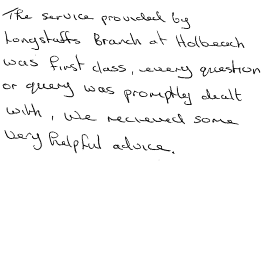 The service provided by
Longstaffs Branch at Holbeach
was first class, every question
or query was promptly dealt
with, we recieved some
very helpful advice.